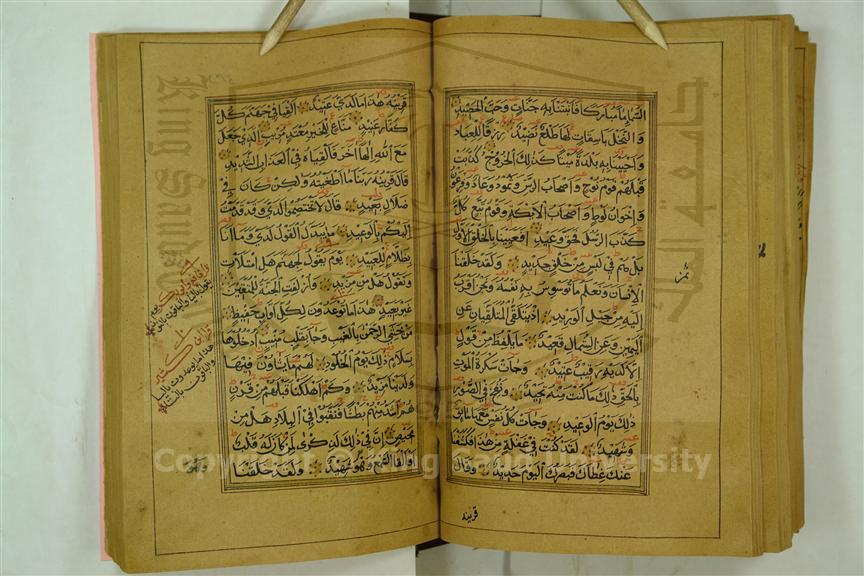 السماء ماء مباركا فانبتنا به جنات وحب الحصيد
والنخل باسقات لها طلع نضيد رزقا للعباد
واحيينا به بلدة ميتا كذلك الخروج كذبت
قبلهم قوم نوح واصحاب الرس وثمود وعاد وفرعون
واخوان لوط واصحاب الايكة وقوم تبع كل
كذب الرسل فحق وعيد افعيينا بالخلق الاول
بل هم في لبس من خلق جديد ولقد خلقنا
الانسان ونعلم ما توسوس به نفسه ونحن اقرب
اليه من حبل الوريد اذ يتلقى المتلقيان عن
اليمين وعن الشمال قعيد ما يلفظ من قول
الا لديه رقيب عتيد وجاءت سكرة الموت
بالحق ذلك ما كنت منه تحيد ونفخ في الصور
ذلك يوم الوعيد وجاءت كل نفس معها سائق
وشهيد لقد كنت في غفلة من هذا فكشفنا
عنك غطاءك فبصرك اليوم حديد وقال
قرينه
قرينه هذا ما لدي عتيد القيا في جهنم كل
كفار عنيد مناع للخير معتد مريب الذي جعل
مع الله الها آخر فالقياه في العذاب الشديد
قال قرينه ربنا ما اطغيته ولكن كان في
ضلال بعيد قال لا تختصموا لدي وقد قدمت
اليكم بالوعيد ما يبدل القول لدي وما انا
بظلام للعبيد يوم يقول لجهنم هل امتلات
وتقول هل من مزيد وازلفت الجنة للمتقين
غير بعيد هذا ما توعدون لكل اواب حفيظ
من خشي الرحمن بالغيب وجاء بقلب منيب ادخلوها
بسلام ذلك يوم الخلود لهم ما يشاؤن فيها
ولدينا مزيد وكم اهلكنا قبلهم من قرن
هم اشد منهم بطشا فنقبوا في البلاد هل من
محيص ان في ذلك لذكرى لمن كان له قلب
او القى السمع وهو شهيد ولقد خلقنا
جامعة الملك
King Saud
Copyright © King Saud University